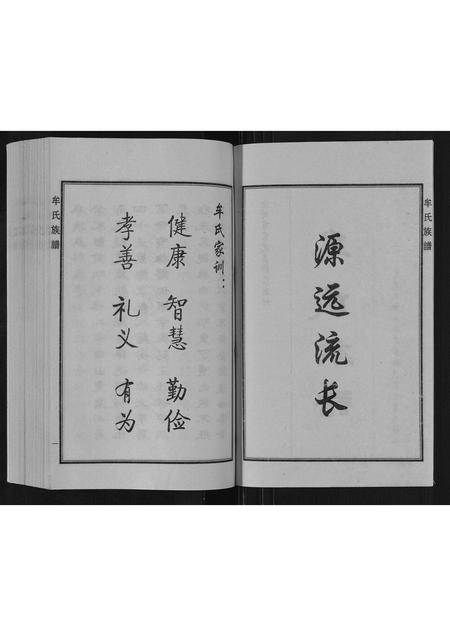 牟氏族譜
源远流长
牟氏家训：
健康 智慧 勤俭
孝善 礼义 有为
牟氏族譜
一